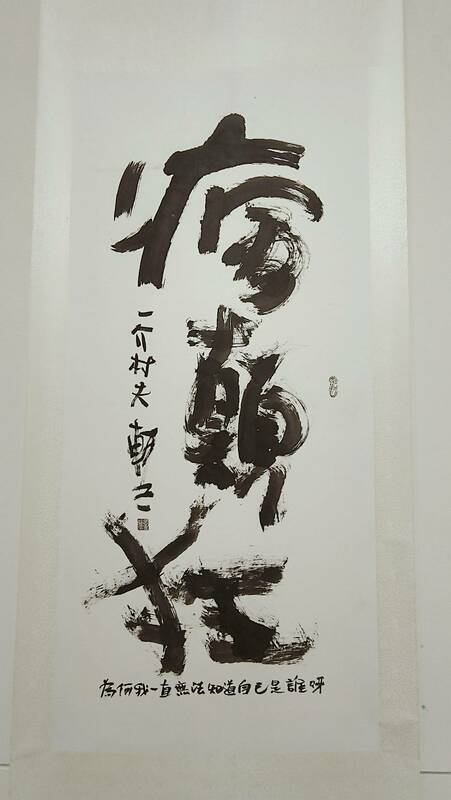 病顛狂
一介村夫
為何我一直無法知道自己是誰呀